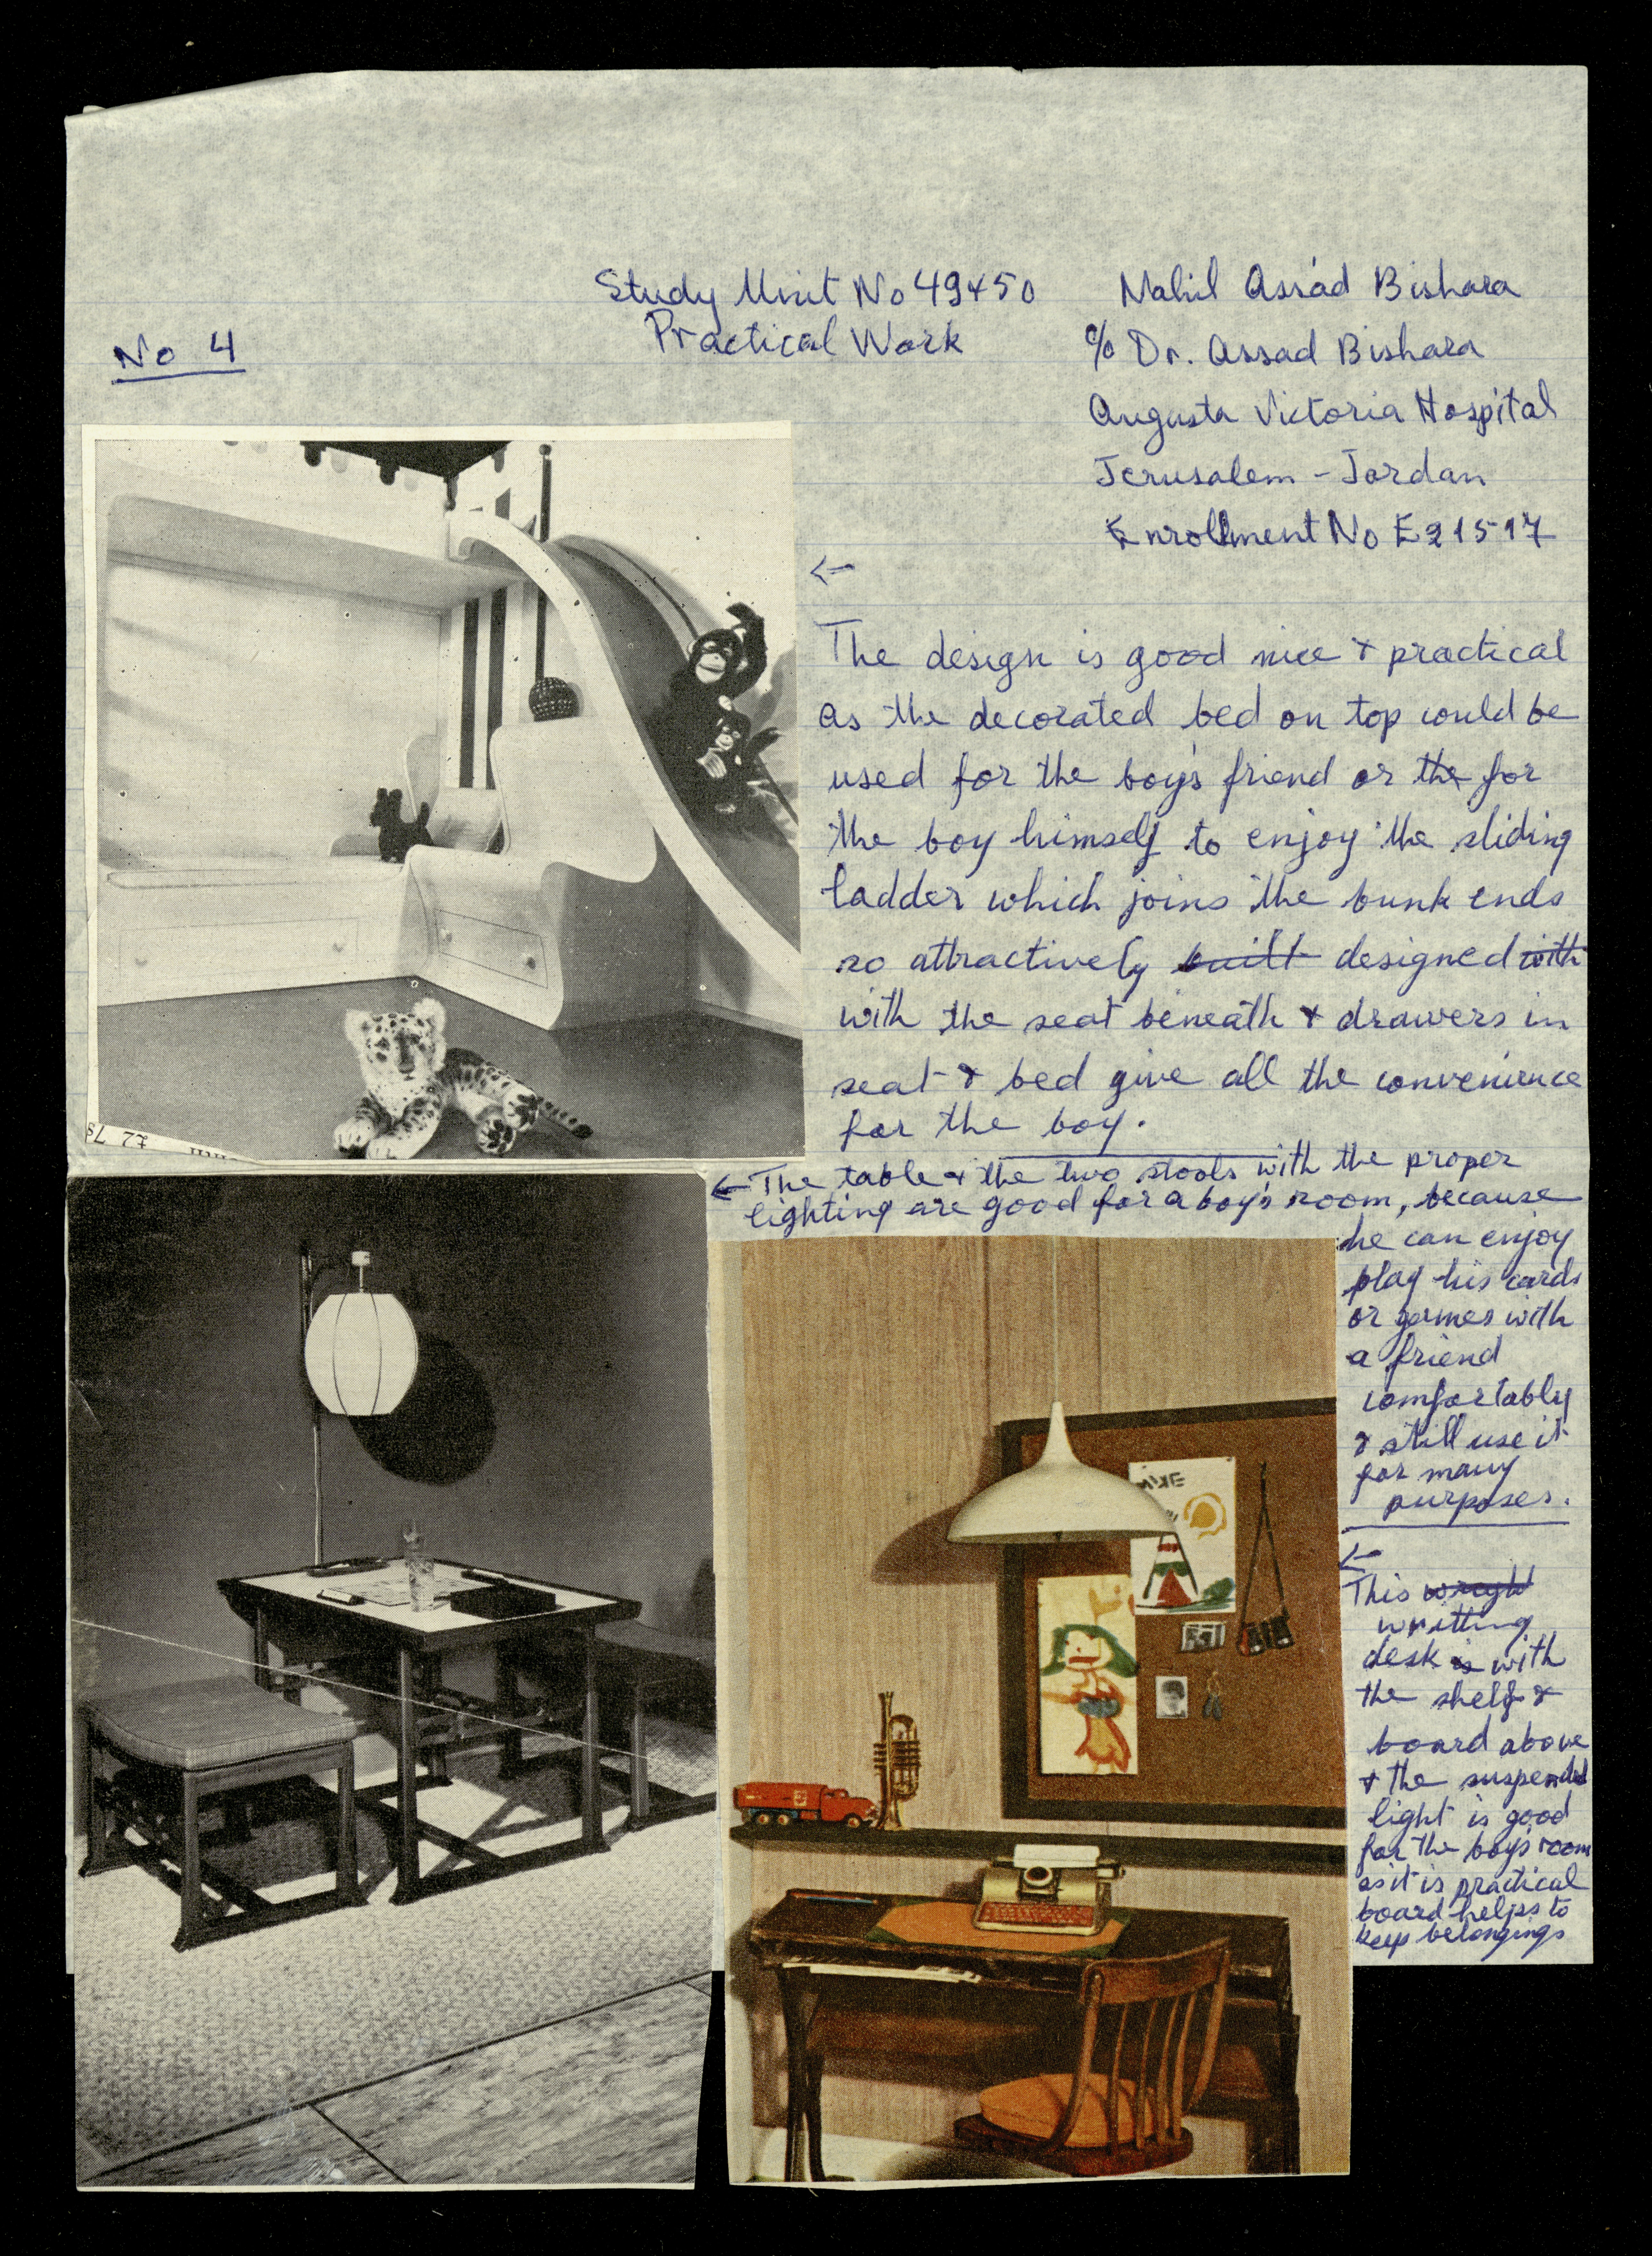 Study Unit No 49+50
Practical Work
No 4
Nahil Assad Bishara
c/o Dr. Assad Bishara
Augusta Victoria Hospital
Jerusalem - Jordan
Enrollment No E21517
←
The design is good nice & practical
as the decorated bed on top could be
used for the boy's friend or the for
the boy himself to enjoy the sliding
ladder which joins the bunk ends
so attractively built designed with
with the seat beneath & drawers in
seat & bed give all the convenience
for the boy.
← The table & the two stools with the proper
lighting are good for a boy's room, because
he can enjoy
play his cards
or games with
a friend
comfortably
& still use it
for many
purposes.
←
This
writting
desk is with
the shelf &
board above
& the suspended
light is good
for the boy's room
as it is practical
board helps to
keep belongings
£2 7s